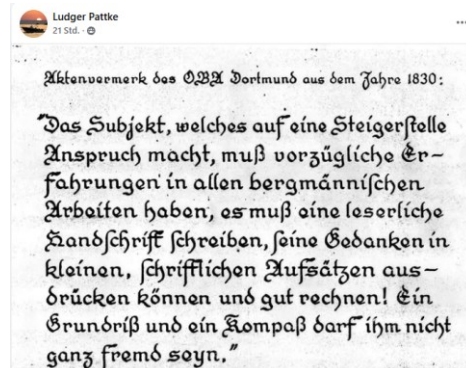 Ludger Pattke
21 Std. ·
Aktenvermerk des O.B.A Dortmund aus dem Jahre 1830:
"Das Subjekt, welches auf eine Steigerſtelle
Anspruch macht, muß vorzügliche Er-
fahrungen in allen bergmänniſchen
Arbeiten haben, es muß eine leserliche
Handſchrift ſchreiben, ſeine Gedanken in
kleinen, ſchriftlichen Aufſätzen aus-
drücken können und gut rechnen! Ein
Grundriß und ein Kompaß darf ihm nicht
ganz fremd seyn."